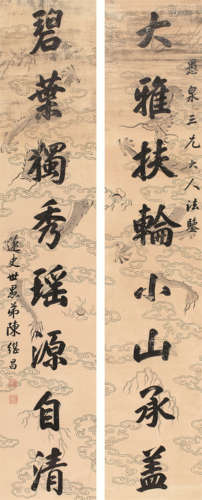 泉三兄大人法鑒
大雅扶輪小山承盖
碧葉獨秀瑶源自清
蓮史世愚弟陳継昌